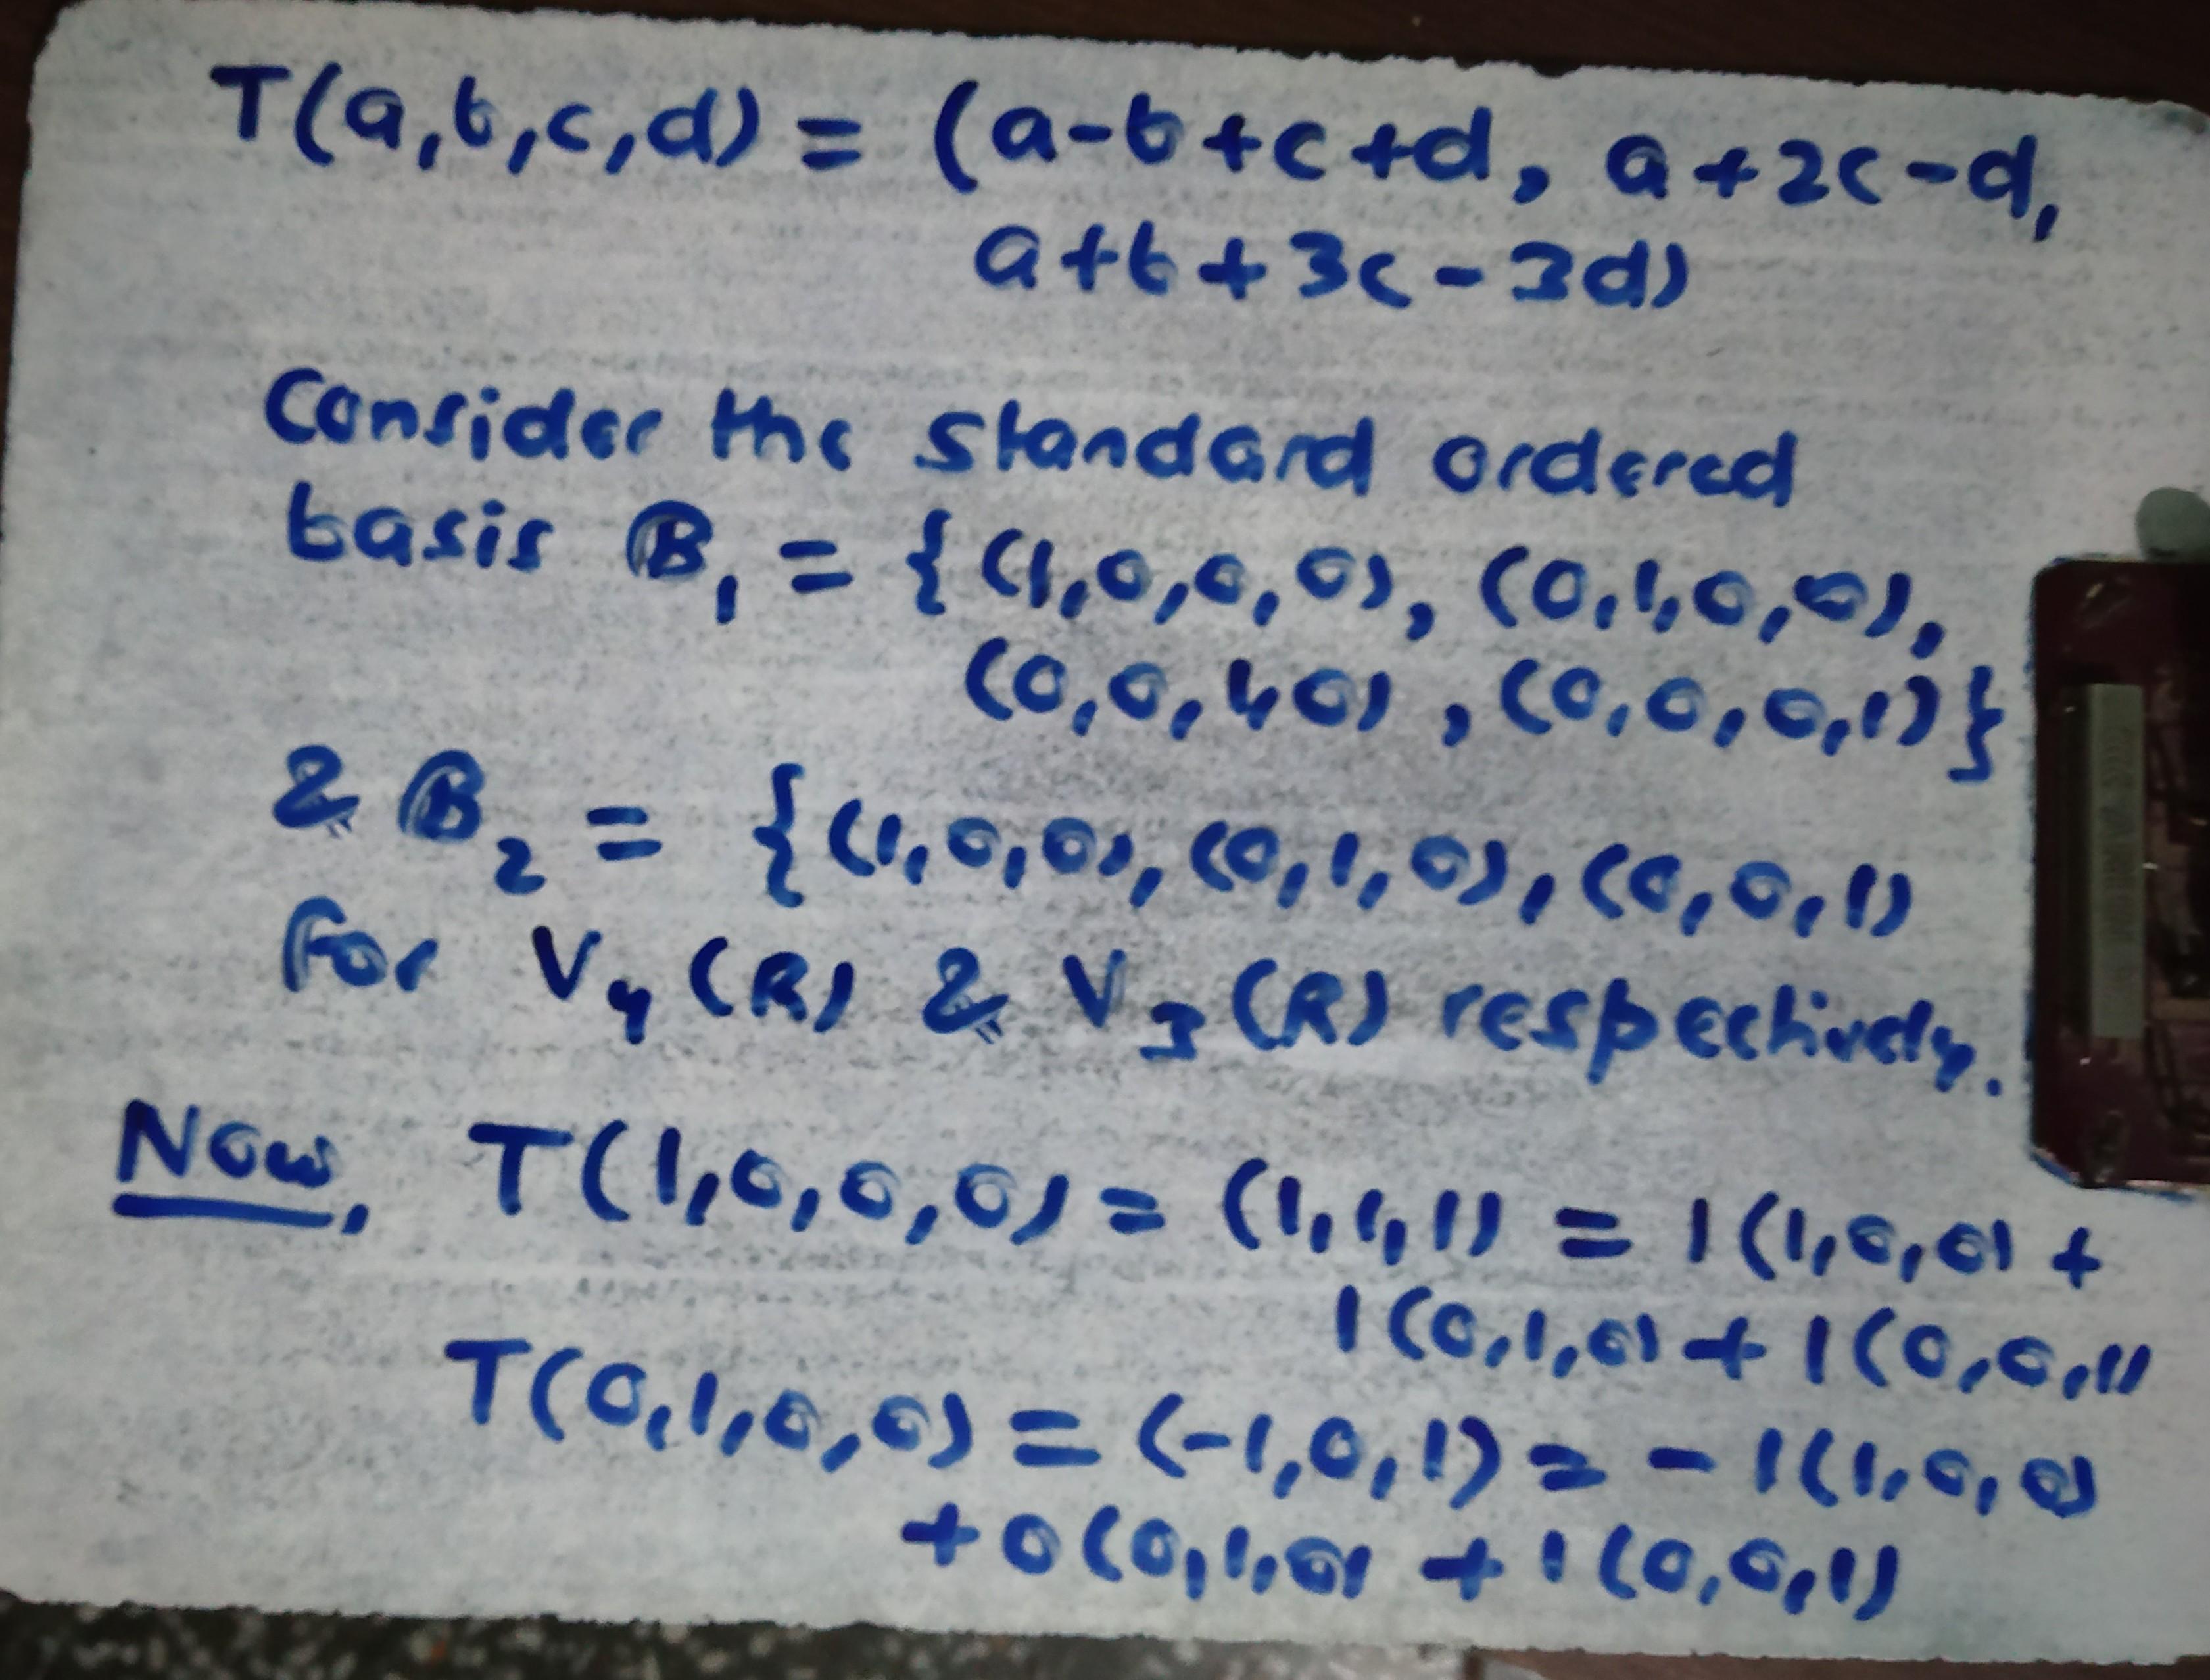 T(a,b,c,d) = (a-b+c+d, a+2c-d,
a+b+3c-3d)
Consider the standard ordered
basis B₁ = {(1,0,0,0), (0,1,0,0),
(0,0,1,0), (0,0,0,1)}
& B₂ = {(1,0,0),(0,1,0),(0,0,1)
for V₄(R) & V₃(R) respectively.
Now, T(1,0,0,0) = (1,1,1) = 1(1,0,0) +
1(0,1,0) + 1(0,0,1)
T(0,1,0,0) = (-1,0,1) = -1(1,0,0)
+0(0,1,0) + 1(0,0,1)